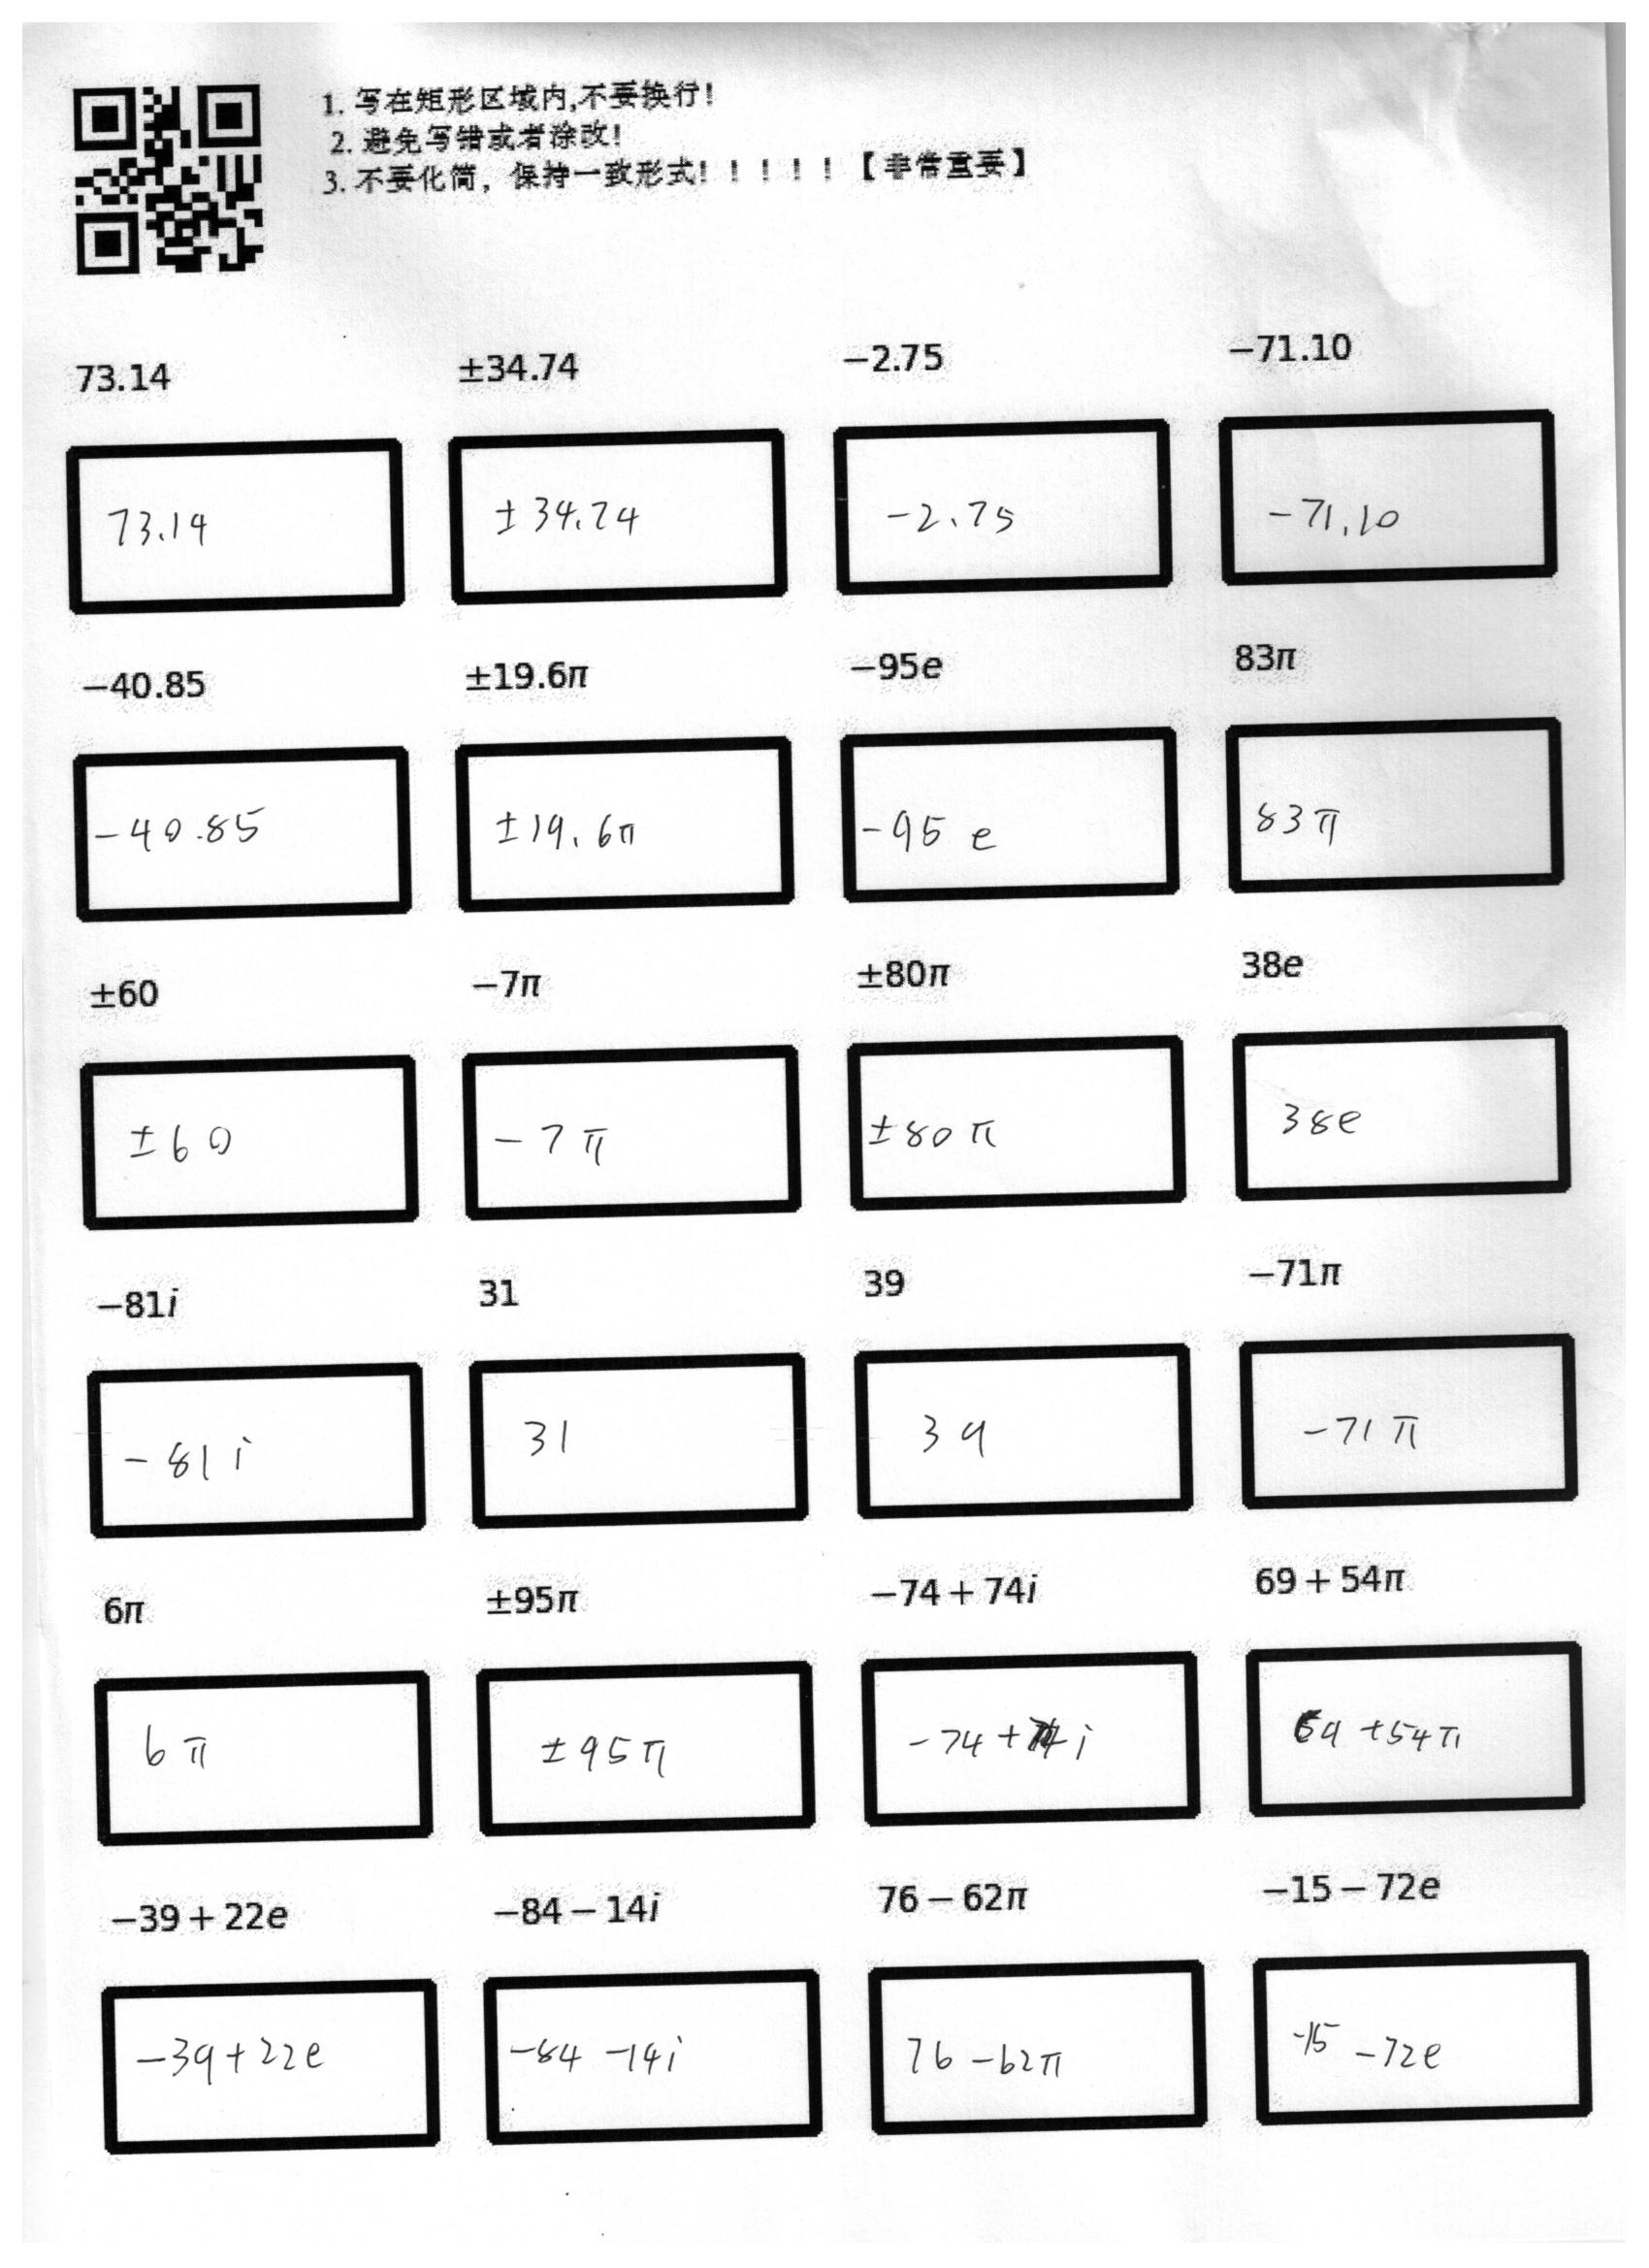 1. 写在矩形区域内,不要换行!
2. 避免写错或者涂改!
3. 不要化简，保持一致形式! ! ! ! ! !【非常重要】
73.14 ±34.74 −2.75 −71.10
73.14 ±34.74 -2.75 -71.10
−40.85 ±19.6π −95e 83π
-40.85 ±19.6π -95e 83π
±60 −7π ±80π 38e
±60 -7π ±80π 38e
−81i 31 39 −71π
-81i 31 39 -71π
6π ±95π −74+74i 69+54π
6π ±95π -74+ i 69+54π
−39+22e −84−14i 76−62π −15−72e
-39+22e -84-14i 76-62π -15-72e